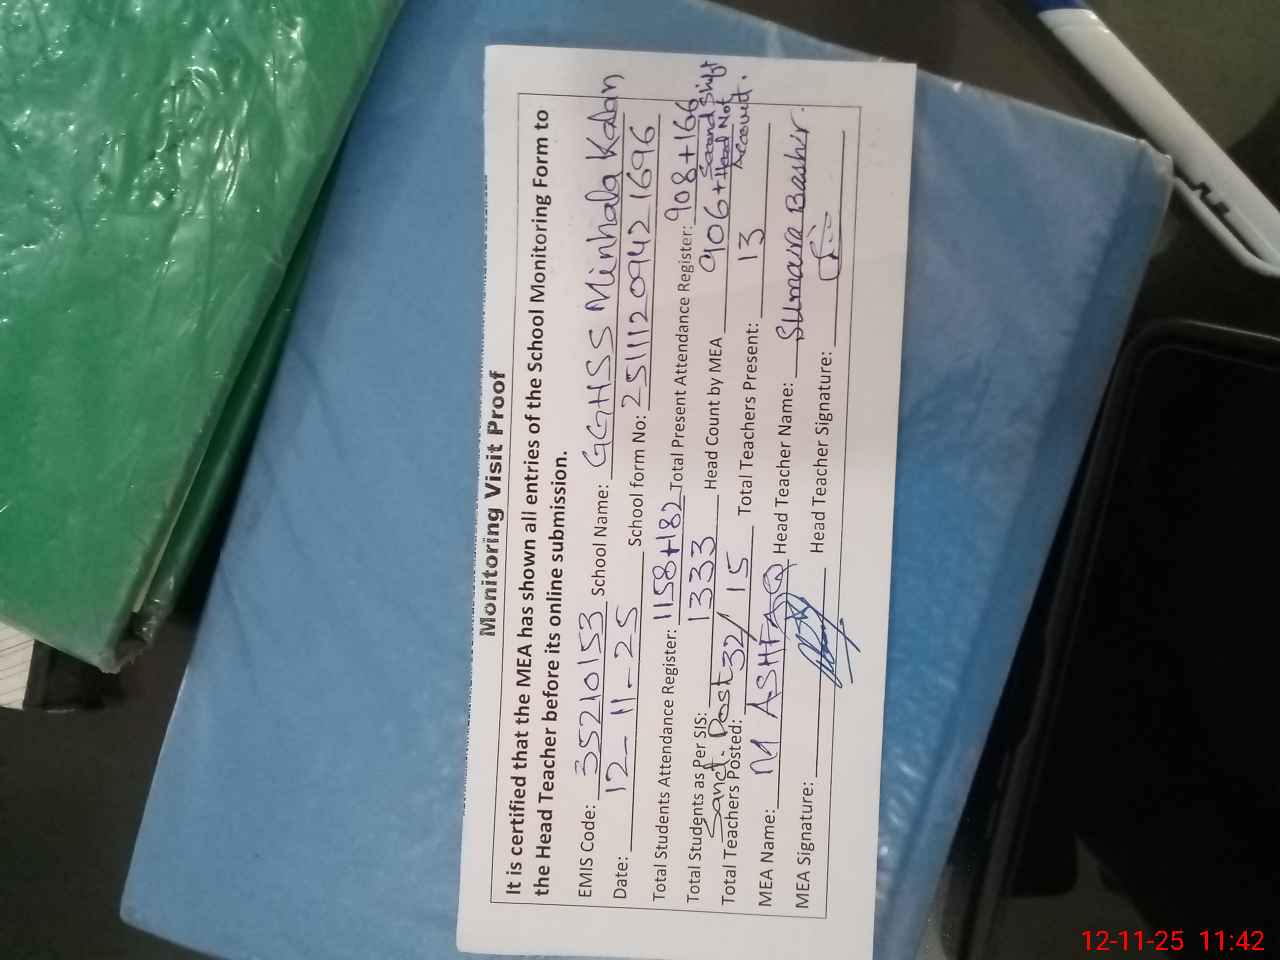 Monitoring Visit Proof
It is certified that the MEA has shown all entries of the School Monitoring Form to
the Head Teacher before its online submission.
EMIS Code: 35210153 School Name: GGHSS Minhala Kalan
Date: 12-11-25 School form No: 2511120942 1696
Total Students Attendance Register: 1158+182 Total Present Attendance Register: 908+166
Total Students as Per SIS: 1333 Head Count by MEA 906+ Second Shift Head Not Account.
Sanct. Post 32/
Total Teachers Posted: 15 Total Teachers Present: 13
MEA Name: M ASHFAQ Head Teacher Name: Sumaira Bashir
MEA Signature: Head Teacher Signature:
12-11-25 11:42